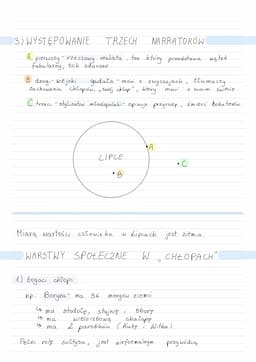 3) WYSTĘPOWANIE TRZECH NARRATORÓW
A. pierwszy - rzeczowy realista, ten który przedstawia wątek
fabularny, tok zdarzeń
B. drugi - wiejski gaduła - mówi o zwyczajach, tłumaczy
zachowania chłopów, „swój chłop", który mówi o swoim świecie
C. trzeci - stylizator młodopolski - opisuje przyrodę, śmierć bohaterów
A
LIPCE
C
B
Miarą wartości człowieka w Lipcach jest ziemia.
WARSTWY SPOŁECZNE W „CHŁOPACH"
1) bogaci chłopi
np. Boryna - ma 36 morgów ziemi
↳ ma stodołę, stajnię i oborę
↳ ma wieloizbową chałupę
↳ ma 2 parobków (Kuba i Witka)
Pełni rolę sołtysa, jest nieformalnym przywódcą